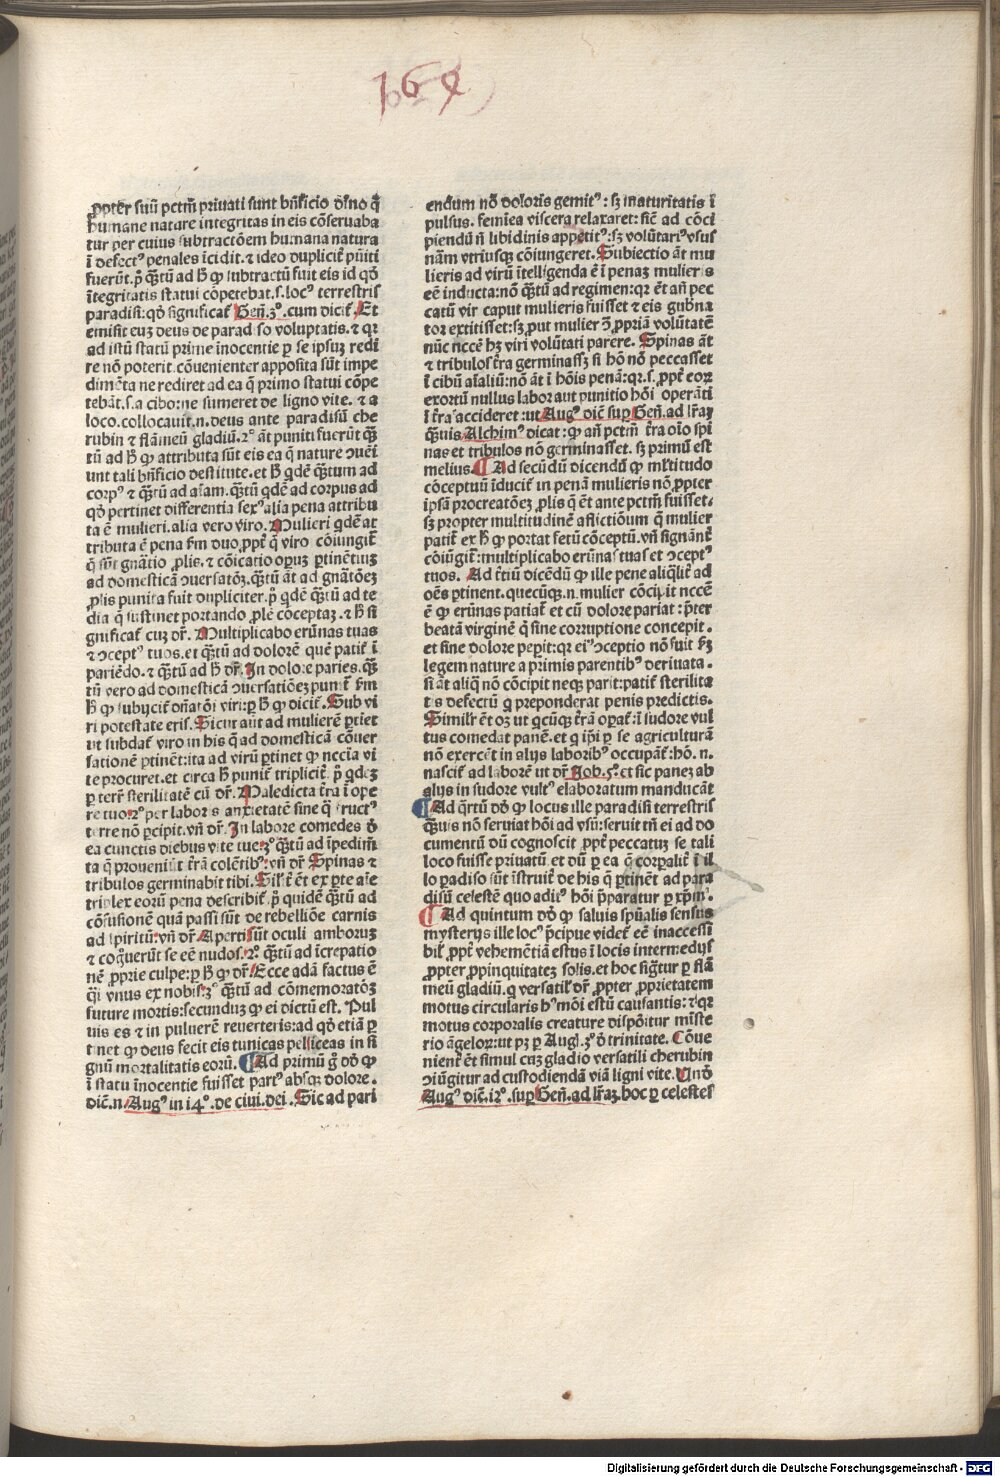 169
ꝓpter suū pctm̄ priuati sunt bn̄ficio diīno q̄
humane nature integritas in eis cōseruaba
tur per cuius subtractōem humana natura
ī defectꝰ penales īcidit. ⁊ ideo dupliciť pūiti
fuerūt. pͦ q̄ꝫtū ad h̄ ꝙ subtractū fuit eis id qd̄
ītegritatis statui cōpetebat. s. locꝰ terrestris
paradisi: qd̄ significať Gen̄. 3ͦ. cum diciť. Et
emisit euꝫ deus de paradiso voluptatis. ⁊ qꝛ
ad istū statū prime īnocentie ꝑ se ipsuꝫ redi
re nō poterit. cōuenienter apposita sūt impe
dimēta ne rediret ad ea q̄ primo statui cōpe
tebāt. s. a cibo: ne sumeret de ligno vite. ⁊ a
loco. collocauit. n. deus ante paradisū che
rubin ⁊ flāmeū gladiū. 2ͦ āt puniti fuerūt q̄ꝫ
tū ad h̄ ꝙ attributa sūt eis ea q̄ nature ꝯuēi
unt tali bn̄ficio destitute. et h̄ qdē q̄ꝫtum ad
corpꝰ ⁊ q̄ꝫtū ad aīam. q̄ꝫtū qdē ad corpus ad
qd̄ pertinet differentia sexꝰ alia pena attribu
ta ē mulieri. alia vero viro. Mulieri qdē at
tributa ē pena ẜm duo, ꝓpt̄ q̄ viro cōiungiť
q̄ sūt gn̄atio ꝓlis. ⁊ cōicatio oꝑuꝫ ꝑtinētiuꝫ
ad domesticā ꝯuersatōꝫ. q̄ꝫtū āt ad gn̄atōeꝫ
ꝓlis punita fuit dupliciter. pͦ qdē q̄ꝫtū ad te
dia q̄ sustinet portando ꝓlē cōceptaꝫ. ⁊ h̄ si
gnificať cuꝫ dr̄. Multiplicabo erūnas tuas
⁊ ꝯceptꝰ tuos. et q̄ꝫtū ad dolorē quē patiť ī
pariēdo. ⁊ q̄ꝫtū ad h̄ dr̄. In dolore paries. q̄ꝫ
tū vero ad domesticā ꝯuersatiōeꝫ puniť ẜm
h̄ ꝙ subijciť dn̄atōi viri: ꝑ h̄ ꝙ diciť. Sub vi
ri potestate eris. Sicut aūt ad mulierē ꝑtiet
ut subdať viro in his q̄ ad domesticā cōuer
sationē ꝑtinēt: ita ad virū ꝑtinet ꝙ nccīa vi
te procuret. et circa h̄ puniť tripliciť. pͦ qdeꝫ
ꝑ terr̄ sterilitatē cū dr̄. Maledicta t̄ra ī ope
re tuo. 2ͦ per laboris anxietatē sine q̄ fructꝰ
terre nō ꝑcipit. vn̄ dr̄. In labore comedes d̄
ea cunctis diebus vite tue. 3ͦ q̄ꝫtū ad īpedim̄
ta q̄ proueniūt t̄rā colētibꝰ. vn̄ dr̄. Spinas ⁊
tribulos germinabit tibi. Silr̄ ēt ex ꝑte aīe
triplex eorū pena describiť. pͦ quidē q̄ꝫtū ad
cōfusionē quā passi sūt de rebelliōe carnis
ad spiritū: vn̄ dr̄. Aperti sūt oculi amboruꝫ
⁊ cogͦuerūt se eē nudos. 2ͦ. q̄ꝫtū ad īcrepatio
nē ꝓprie culpe: ꝑ h̄ ꝙ dr̄. Ecce adā factus ē
q̄i vnus ex nobis. 3ͦ q̄ꝫtū ad cōmemoratōꝫ
future mortis: secunduꝫ ꝙ ei dictū est. Pul
uis es ⁊ in puluerē reuerteris: ad qd̄ etiā ꝑ
tinet ꝙ deus fecit eis tunicas pelliceas in si
gnū mortalitatis eorū. Ad primū g̊ dd̄ ꝙ
ī statu īnocentie fuisset partꝰ absqꝫ dolore.
dic̄. n. Augꝰ in 14ͦ. de ciui. dei. Sic ad pari
endum nō doloris gemitꝰ: sꝫ maturitatis ī
pulsus. femīea viscera relaxaret: sic̄ ad cōci
piendū n̄ libidinis appetitꝰ: sꝫ volūtariꝰ vsus
nām vtriusqꝫ cōiungeret. Subiectio āt mu
lieris ad virū ītelligenda ē ī penaꝫ mulieris
eē inducta: nō q̄ꝫtū ad regimen: qꝛ ēt an̄ pec
catū vir caput mulieris fuisset ⁊ eis gub̄na
tor extitisset: sꝫ ꝓut mulier ꝯ̄ ꝓpriā volūtatē
nūc nccē hꝫ viri volūtati parere. Spinas āt
⁊ tribulos t̄ra germinassꝫ si hō nō peccasset
ī cibū aīaliū: nō āt ī hōis penā: qꝛ. s. ꝓpt̄ eoꝝ
exortū nullus labor aut punitio hōi operāti
ī t̄ra accideret: ut Augꝰ dic̄ suꝑ Gen̄. ad lr̄aꝫ
q̄ꝫuis Alchimꝰ dicat: ꝙ an̄ pctm̄ t̄ra oīo spi
nas et tribulos nō germinasset. sꝫ primū est
melius. Ad secūdū dicendū ꝙ ml̄titudo
cōceptuū īduciť in penā mulieris nō ꝓpter
ipsā procreatōeꝫ ꝓlis q̄ ēt ante pctm̄ fuisset.
sꝫ propter multitudinē aflictiōum q̄ mulier
patiť ex h̄ ꝙ portat fetū cōceptū. vn̄ signāt̄
cōiūgiť: multiplicabo erūnas tuas et ꝯceptꝰ
tuos. Ad t̄tiū dicēdū ꝙ ille pene aliqlit̄ ad
oēs ꝑtinent. quecūqꝫ. n. mulier cōcipit nccē
ē ꝙ erūnas patiať et cū dolore pariat: p̄ter
beatā virginē q̄ sine corruptione concepit.
et sine dolore peꝑit: qꝛ eiꝰ ꝯceptio nō fuit ẜꝫ
legem nature a primis parentibꝰ deriuata.
si āt aliq̄ nō cōcipit neqꝫ parit: patiť sterilita
tis defectū q̄ preponderat penis predictis.
Similr̄ ēt oꝫ ut qcūqꝫ t̄rā oꝑať: ī sudore vul
tus comedat panē. et q ip̄i ꝑ se agriculturā
nō exercēt in alijs laboribꝰ occupāť: hō. n.
nasciť ad laborē ut dr̄ Job. 5ͦ. et sic paneꝫ ab
alijs in sudore vultꝰ elaboratum manducāt
Ad q̄rtū dd̄ ꝙ locus ille paradisi terrestris
q̄ꝫuis nō seruiat hōi ad vsū: seruit tn̄ ei ad do
cumentū dū cognoscit ꝓpt̄ peccatuꝫ se tali
loco fuisse priuatū et dū ꝑ ea q̄ corꝑalit̄ ī il
lo paradiso sūt īstruiť de his q̄ ꝑtinēt ad para
disū celestē quo aditꝰ hōi p̄paratur ꝑ xp̄m.
Ad quintum dd̄ ꝙ saluis spūalis sensus
mysterijs ille locꝰ p̄cipue videť eē inaccessi
bil̄ ꝓpt̄ vehemētiā estus ī locis intermedijs
ꝓpter ꝓpinquitateꝫ solis. et hoc sigͣtur ꝑ flā
meū gladiū. q versatil̄ dr̄ ꝓpter ꝓprietatem
motus circularis hꝰmōi estū causantis: ⁊ qꝛ
motus corporalis creature dispōitur mīste
rio āgeloꝝ: ut pꝫ ꝑ Augl. 3ͦ d̄ trinitate. Cōue
nienť ēt simul cuꝫ gladio versatili cherubin
ꝯiūgitur ad custodiendā viā ligni vite. Unō
Augꝰ dic̄. 12ͦ. suꝑ Gen̄. ad lr̄aꝫ. hoc ꝑ celestes
Digitalisierung gefördert durch die Deutsche Forschungsgemeinschaft - DFG